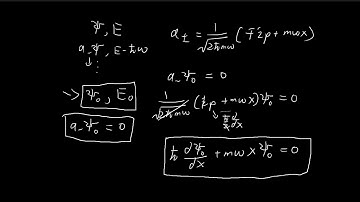 ψ, E
a₋ψ, E-ħω
↓ ⋮
-> ψ₀, E₀
a₋ψ₀ = 0
a± = 1/√(2ħmω) (∓ip + mωx)
a₋ψ₀ = 0
1/√(2ħmω) (ip + mωx)ψ₀ = 0
↓ ħ/i d/dx
ħ dψ₀/dx + mωxψ₀ = 0